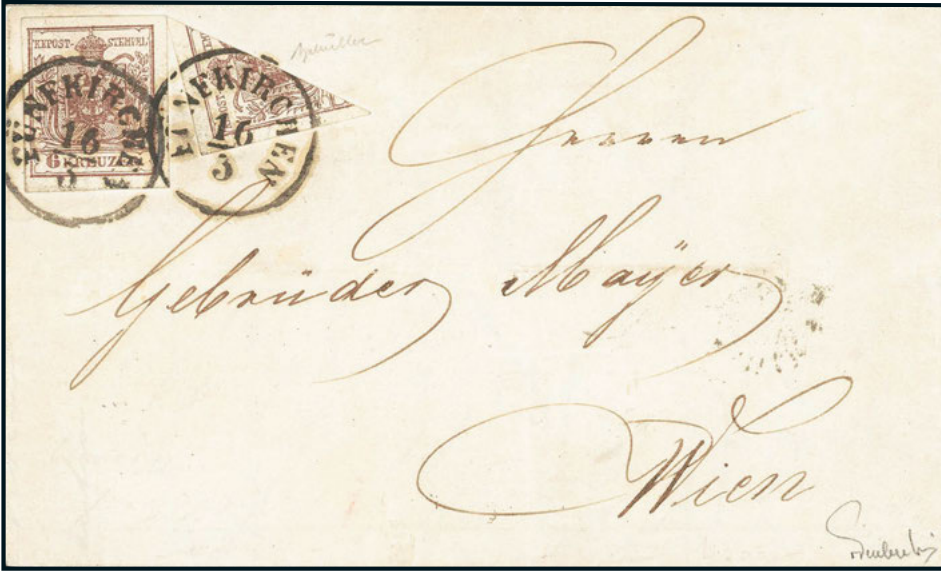 KKPOST-STEMPEL
6 KREUZER
FÜNFKIRCHEN
16
3
FÜNFKIRCHEN
16
3
Herren
Gebrüder Mayer
Wien